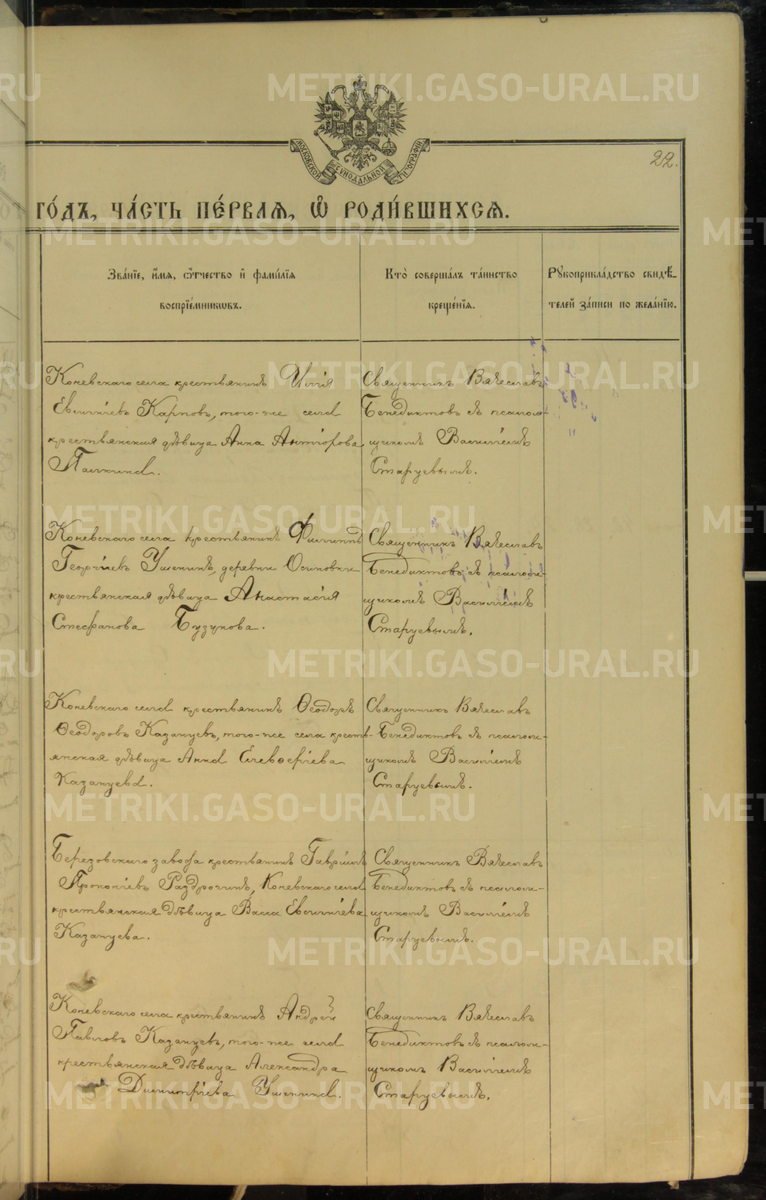 МОСКОВСКОЙ СѴНОДАЛЬНОЙ ТИПОГРАФІИ
22.
ГО́ДЪ, ЧА́СТЬ ПЕ́РВАЯ, Ѡ҆ РОДИ́ВШИХСЯ.
Зва́нїе, и҆́мя, ѻ҆́тчество и҆ фами́лїя
воспрїе́мниковъ.
Кто̀ соверша́лъ та́инство
креще́нїя.
Рꙋкоприкла́дство свидѣ́-
телей за́писи по жела́нїю.
Коневскаго села крестьянинъ Илія
Евсиміевъ Карповъ, того-же села
крестьянская дѣвица Анна
Священникъ Вячеславъ
Бенедиктовъ съ псалом-
щикомъ Василіемъ
Старцевымъ.
Коневскаго села крестьянинъ Филиппъ
Георгіевъ Ушенинъ, деревни Осиновки
крестьянская дѣвица Анастасія
Стефанова Бузунова.
Священникъ Вячеславъ
Бенедиктовъ съ псалом-
щикомъ Василіемъ
Старцевымъ.
Коневскаго села крестьянинъ Ѳеодоръ
Ѳеодоровъ Казанцевъ, того-же села кресть-
янская дѣвица Анна Елевферіева
Казанцева.
Священникъ Вячеславъ
Бенедиктовъ съ псаломи-
щикомъ Василіемъ
Старцевымъ.
Березовскаго завода крестьянинъ Гавріилъ
Прокопіевъ Раздрочинъ, Коневскаго села
крестьянская дѣвица Васса Евсиміева
Казанцева.
Священникъ Вячеславъ
Бенедиктовъ съ псалом-
щикомъ Василіемъ
Старцевымъ.
Коневскаго села крестьянинъ Андрей
Павловъ Казанцевъ, того-же села
крестьянская дѣвица Александра
Димитріева Ушенина.
Священникъ Вячеславъ
Бенедиктовъ съ псалом-
щикомъ Василіемъ
Старцевымъ.
METRIKI.GASO-URAL.RU